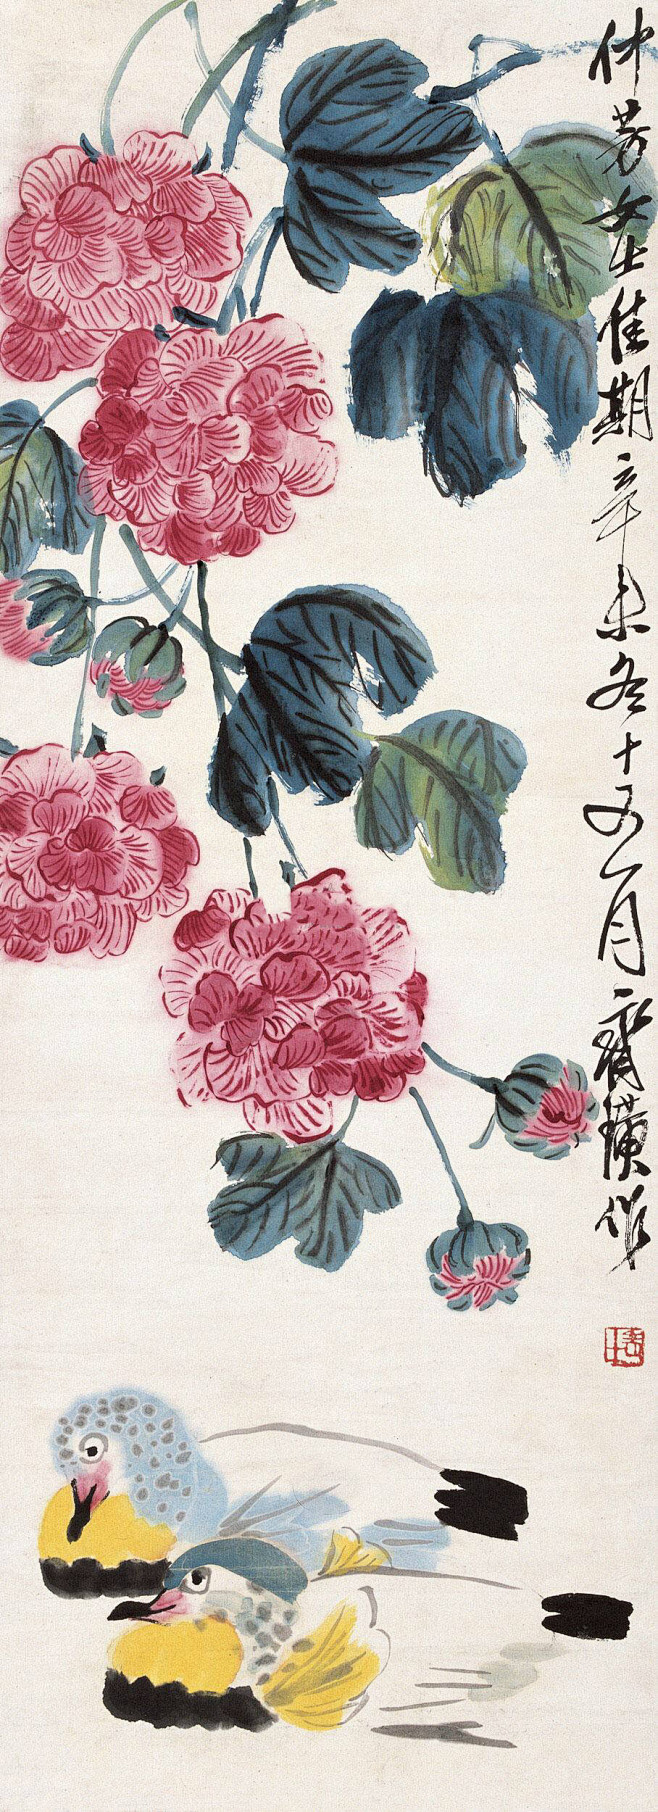 仲芳女士佳期辛未冬十又一月齊璜作